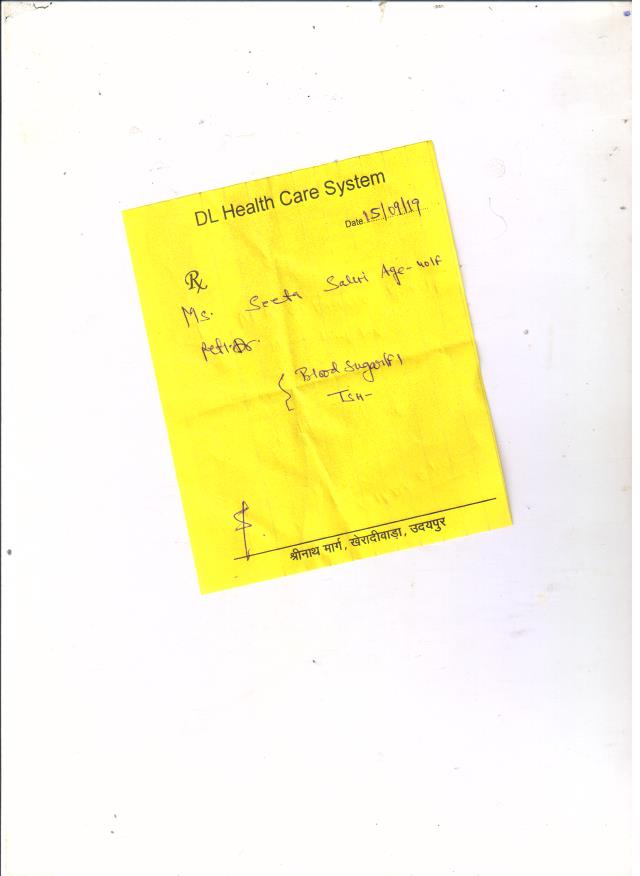 DL Health Care System
Date 15/09/19
Rx
Ms. Seeta Salvi Age- 40/F
Blood Sugar(F)
TSH-
श्रीनाथ मार्ग, खेरादीवाड़ा, उदयपुर